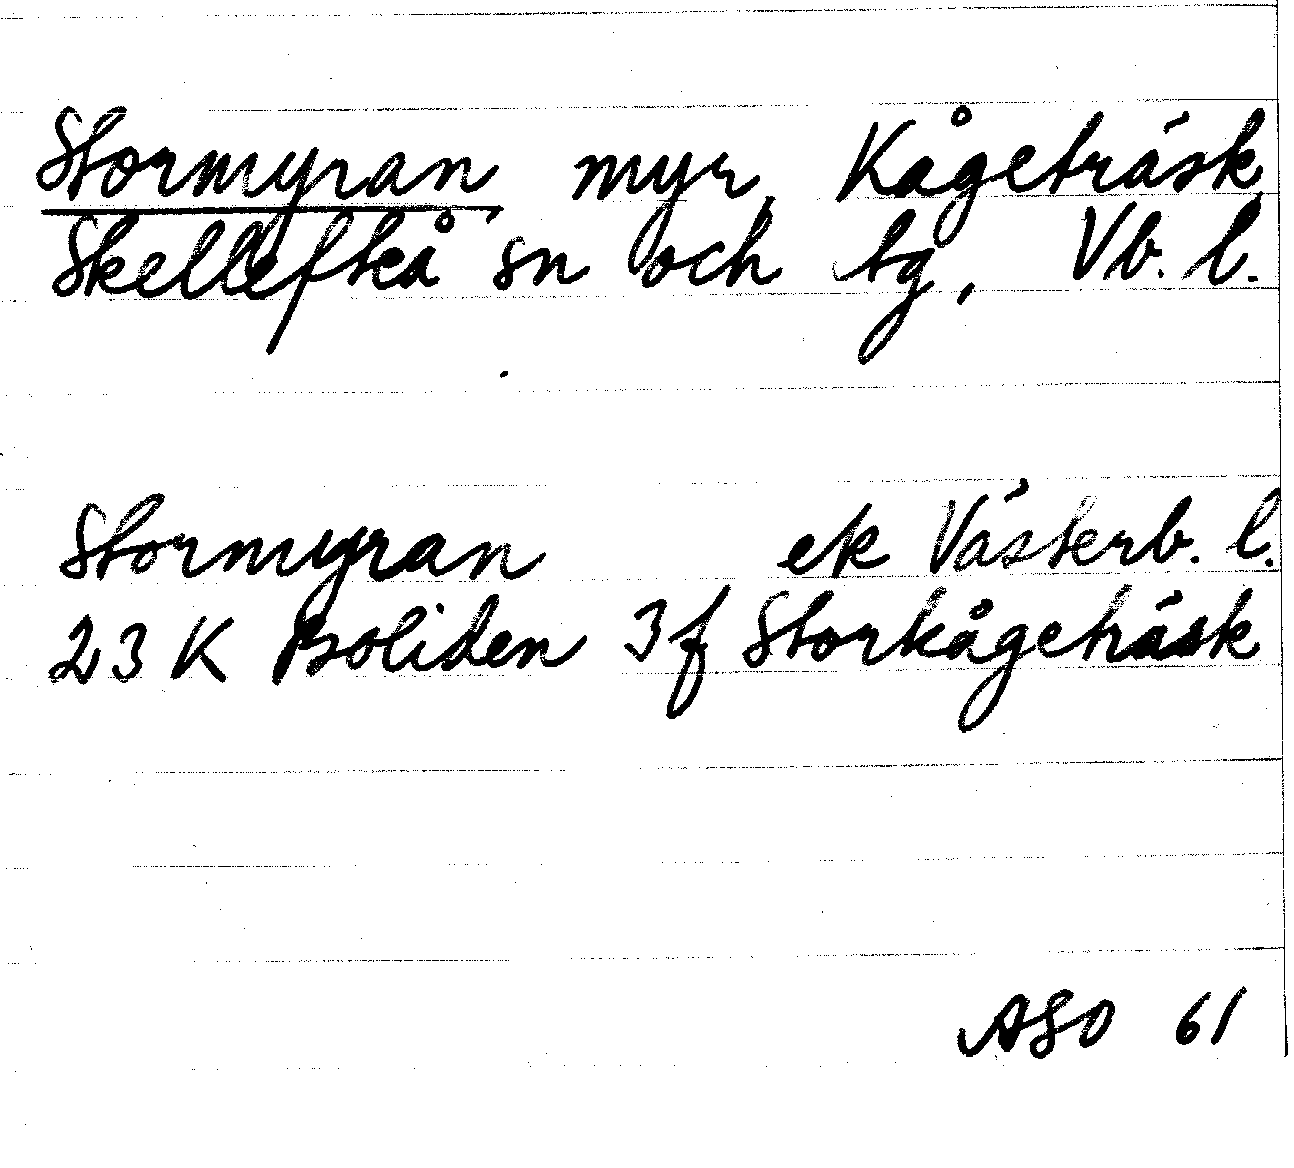 Stormyran, myr, Kågeträsk,
Skellefteå sn och tg, Vb. l.
Stormyran ek Västerb. l.
23 K Boliden 3f Storkågeträsk
ASO 61